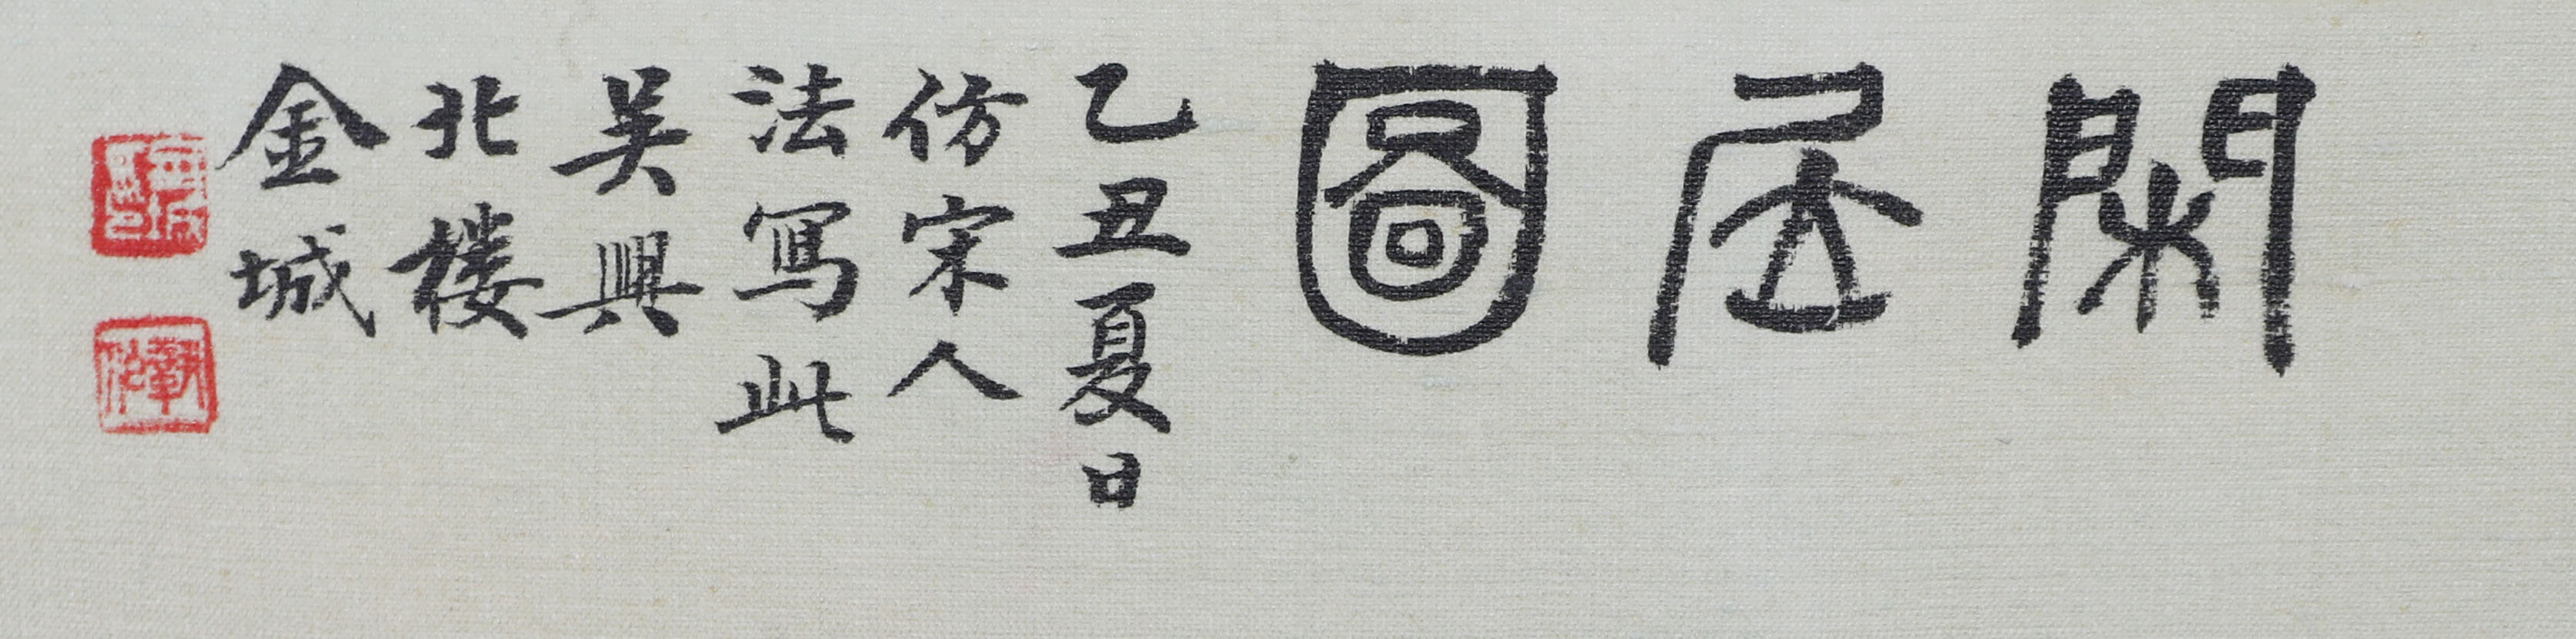 閑居圖
乙丑夏日
仿宋人
法寫此
吴興
北楼
金城